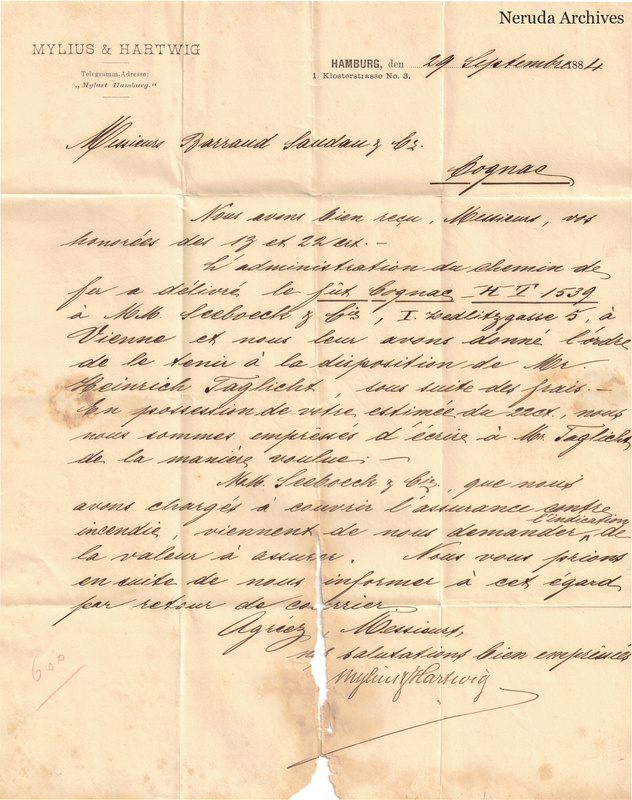 Neruda Archives
MYLIUS & HARTWIG
Telegramm-Adresse:
„Mylart Hamburg."
HAMBURG, den 29 Septembre 1884
1. Klosterstrasse No. 3.
Messieurs Barraud Saudau & Cie.
Cognac
Nous avons bien reçu, Messieurs, vos
honorées des 17 et 22 crt. —
L'administration du chemin de
fer a délivré le fût Cognac H T 1539
à M.M. Seeboeck & Cie, I. Zedlitzgasse 5, à
Vienne et nous leur avons donné l'ordre
de le tenir à la disposition de Mr.
Heinrich Taglicht, sous suite des frais. —
En possession de votre estimée du 22 ct., nous
nous sommes empressés d'écrire à Mr. Taglicht
de la manière voulue. —
M.M. Seeboeck & Cie, que nous
avons chargés à couvrir l'assurance contre
incendie, viennent de nous demander l'indication de
la valeur à assurer. Nous vous prions
en suite de nous informer à cet égard
par retour de courrier
Agréez, Messieurs,
nos salutations bien empressées
Mylius & Hartwig
600